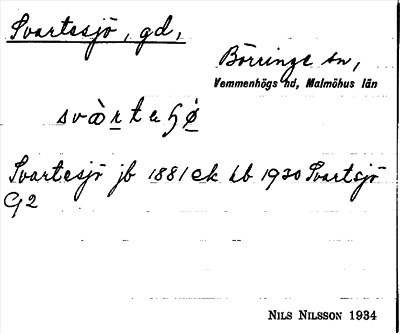 Svartesjö, gd,
Börringe sn,
Vemmenhögs hd, Malmöhus län
Svartesjö jb 1881 ek kb 1930 Svartsjö
G2
NILS NILSSON 1934